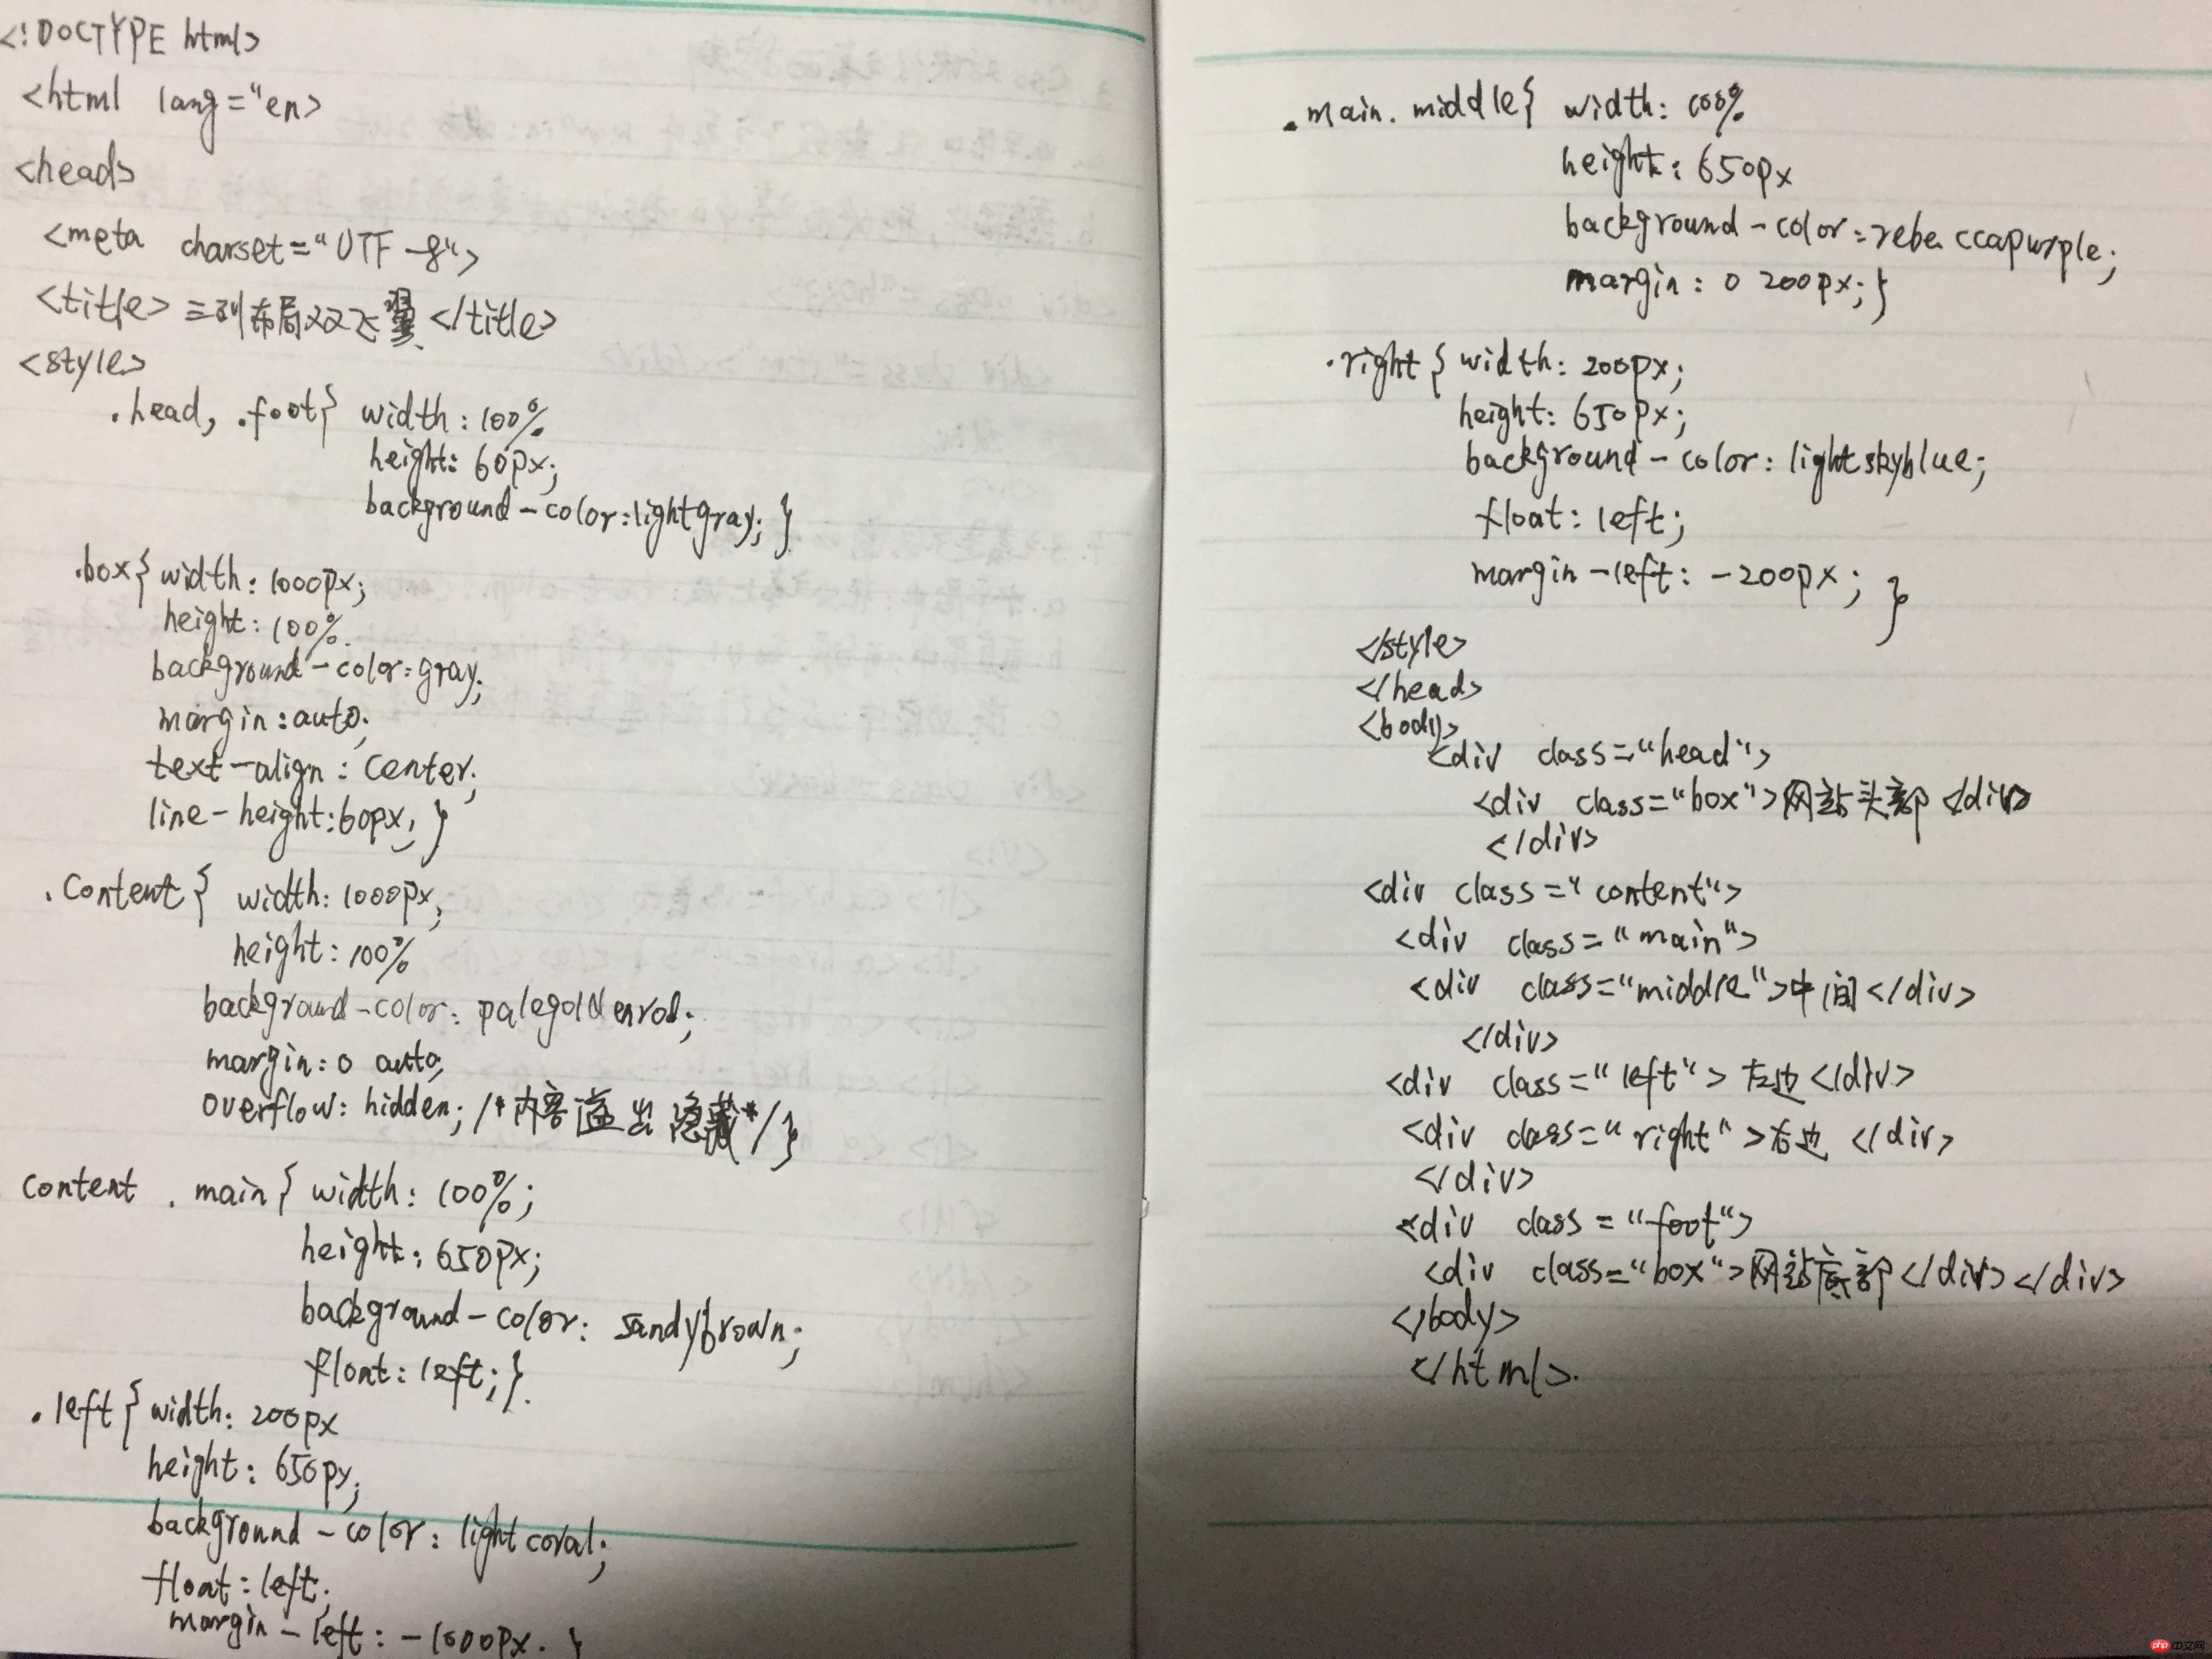 <!DOCTYPE html>
<html lang="en>
<head>
<meta charset="UTF-8">
<title>三列布局双飞翼</title>
<style>
.head, .foot{ width:100%
height:60px;
background-color:lightgray; }
.box{ width:1000px;
height:100%.
background-color:gray;
margin:auto;
text-align:center;
line-height:60px; }
.Content{ width:1000px;
height:100%
background-color: palegoldenrod;
margin:0 auto;
overflow: hidden; /*内容溢出隐藏*/}
content .main{ width: 100%;
height:650px;
background-color: sandybrown;
float:left;}.
.left{ width: 200px
height: 650px;
background-color: lightcoral;
float:left;
margin-left: -1000px. }
.main. middle{ width: 100%
height: 650px
background-color:rebeccapurple;
margin: 0 200px; }
.right{ width: 200px;
height: 650px;
background-color: lightskyblue;
float: left;
margin-left: -200px; }
</style>
</head>
<body>
<div class="head">
<div class="box">网站头部</div>
</div>
<div class="content">
<div class="main">
<div class="middle">中间</div>
</div>
<div class="left">左边</div>
<div class="right">右边</div>
</div>
<div class="foot">
<div class="box">网站底部</div></div>
</body>
</html>.
php 中文网